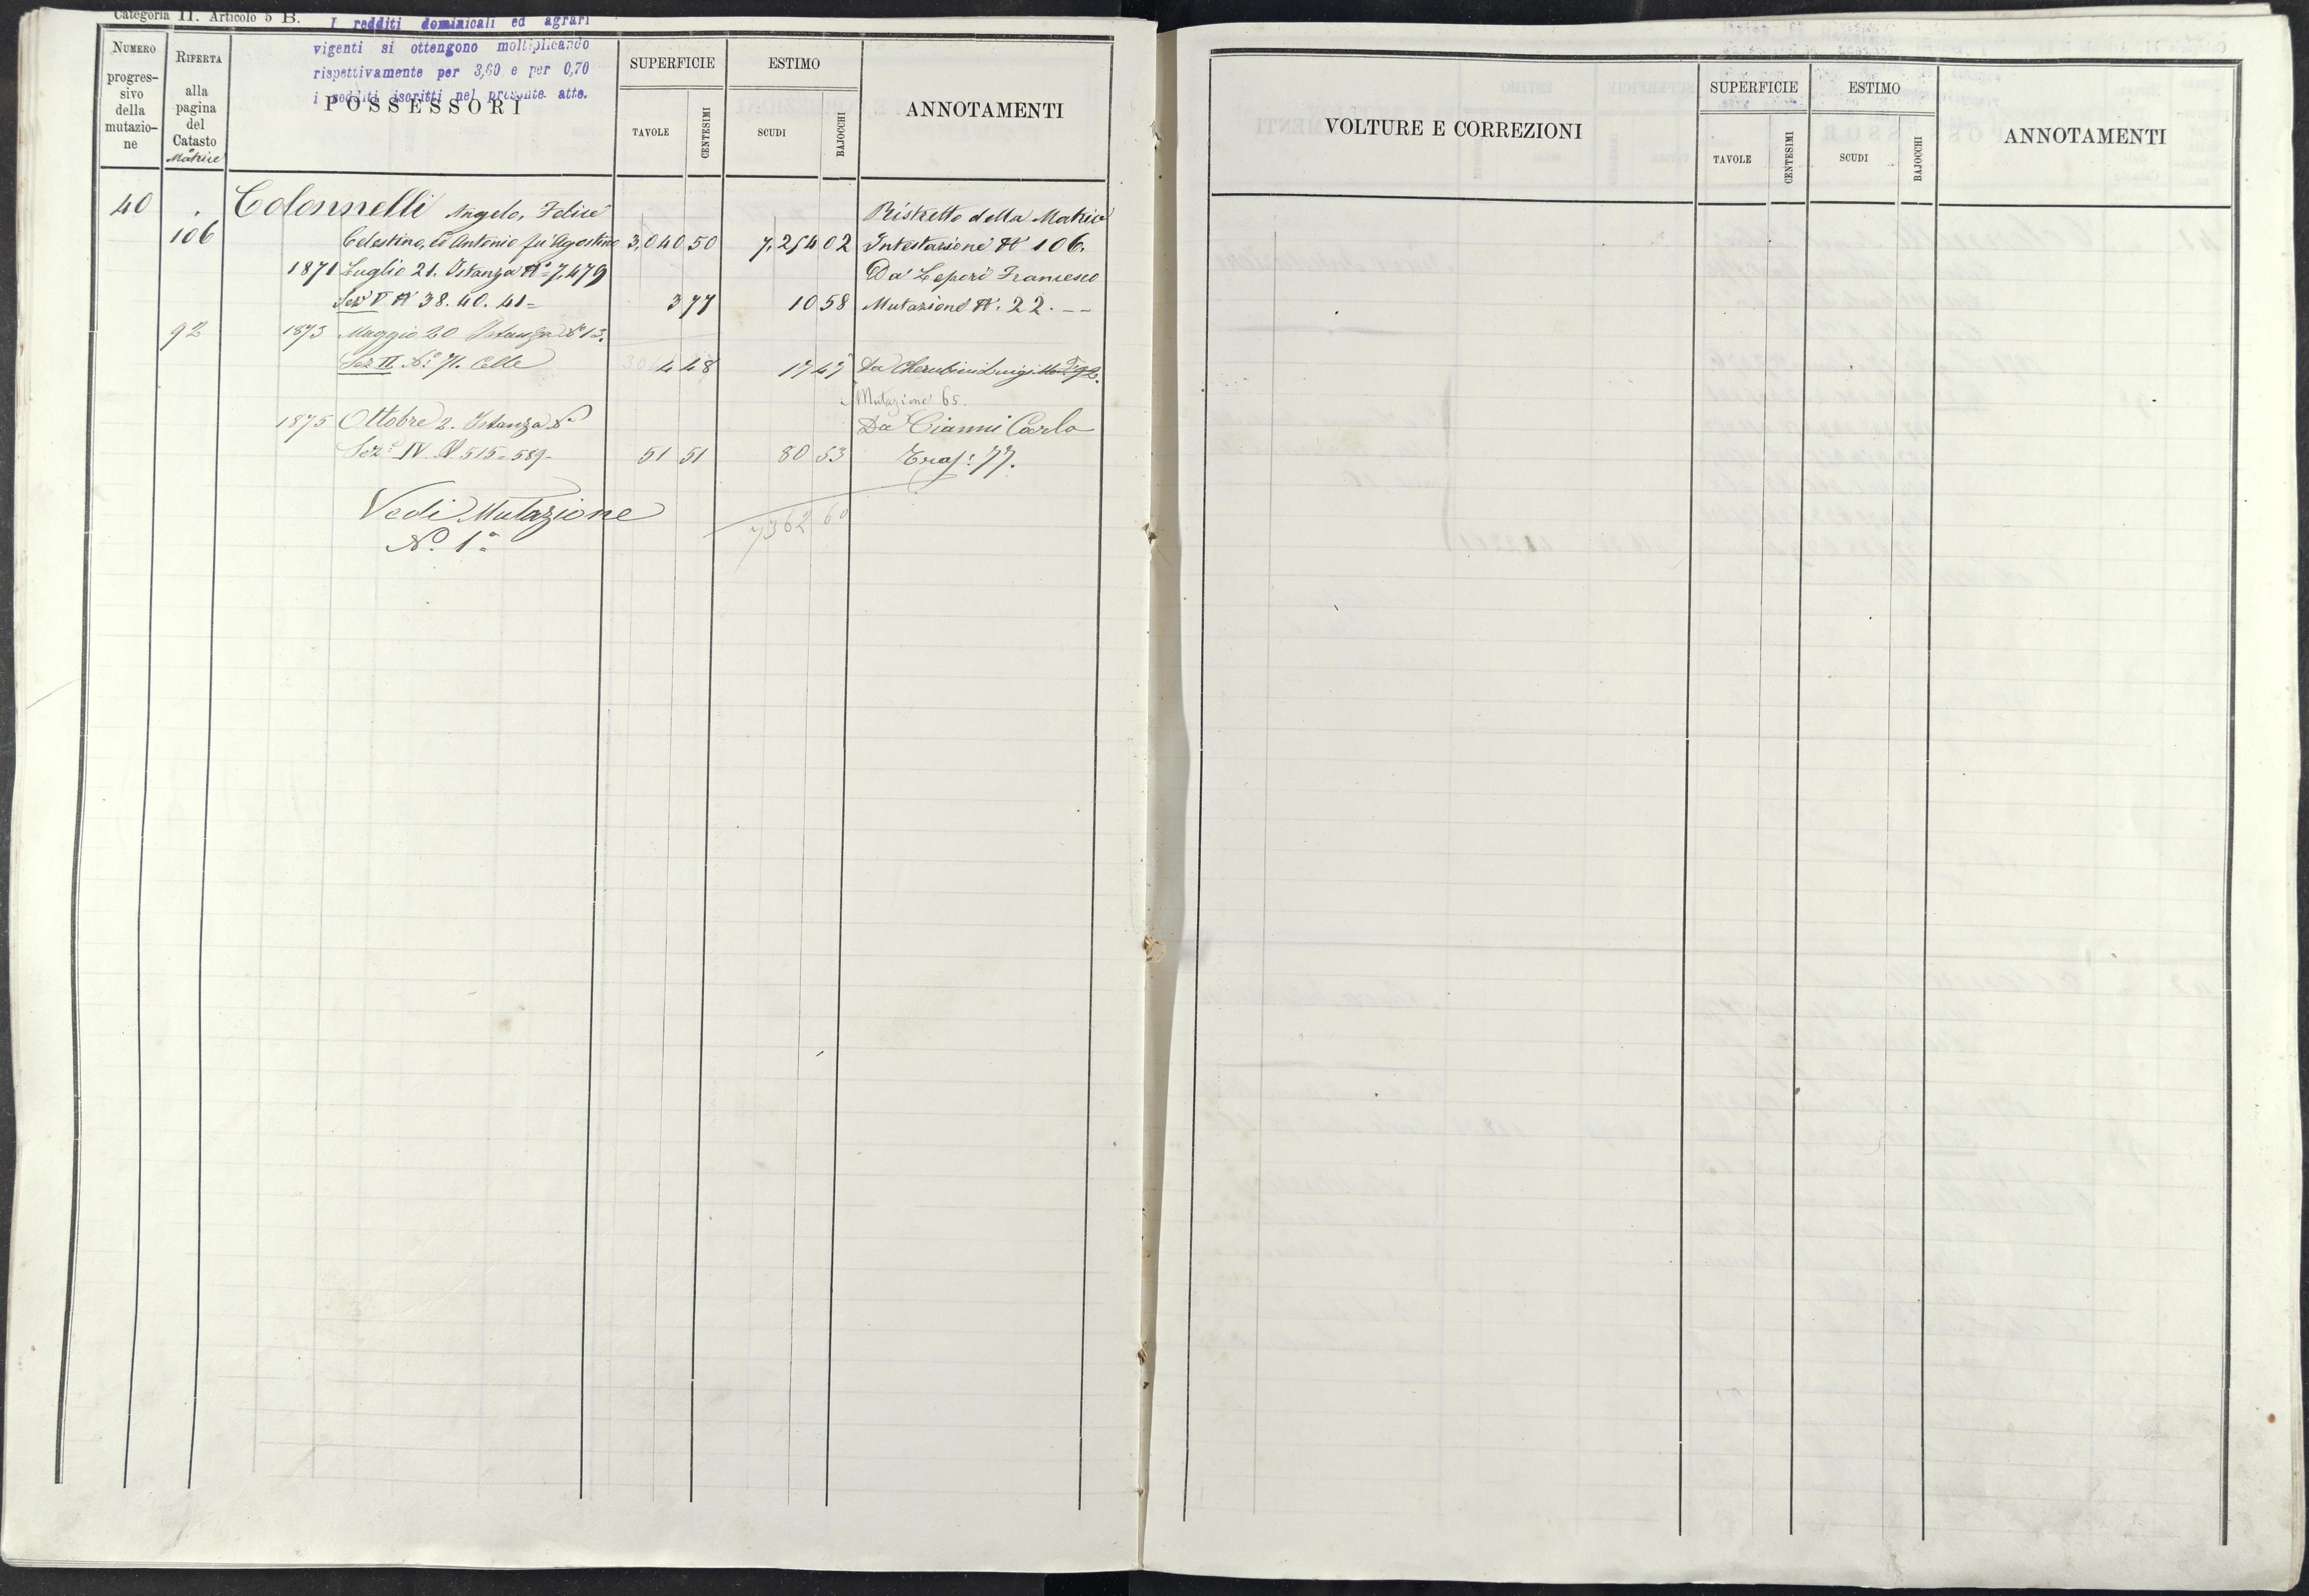 Categoria II. Articolo 5 B.
I redditi dominicali ed agrari
vigenti si ottengono moltiplicando
rispettivamente per 3,60 e per 0,70
i redditi iscritti nel presente atto.
NUMERO progres- sivo della mutazio- ne
RIFERTA alla pagina del Catasto Matrice
POSSESSORI
SUPERFICIE
TAVOLE
CENTESIMI
ESTIMO
SCUDI
BAJOCCHI
ANNOTAMENTI
40 Colonnelli Angelo, Felice Ristretto della Matrice
106 Celestino, ed Antonio fu Agostino 3,040 50 7,254 02 Intestazione N° 106.
1871 Luglio 21. Istanza N° 7,479 Da Leperi Francesco
Sez. V N° 38. 40. 41= 3 77 10 58 Mutazione N. 22. --
92 1873 Maggio 20 Istanza N° 13.
Sez. II N.° 71. Celle 4 48 17 47 Da Cherubini Luigi
Mutazione 65.
1875 Ottobre 2. Istanza N° Da Cianni Carlo
Sez.e IV. N. 515=589- 51 51 80 53 Trasp: 77.
Vedi Mutazione 7362 60
N.° 1=
VOLTURE E CORREZIONI
SUPERFICIE
TAVOLE
CENTESIMI
ESTIMO
SCUDI
BAJOCCHI
ANNOTAMENTI